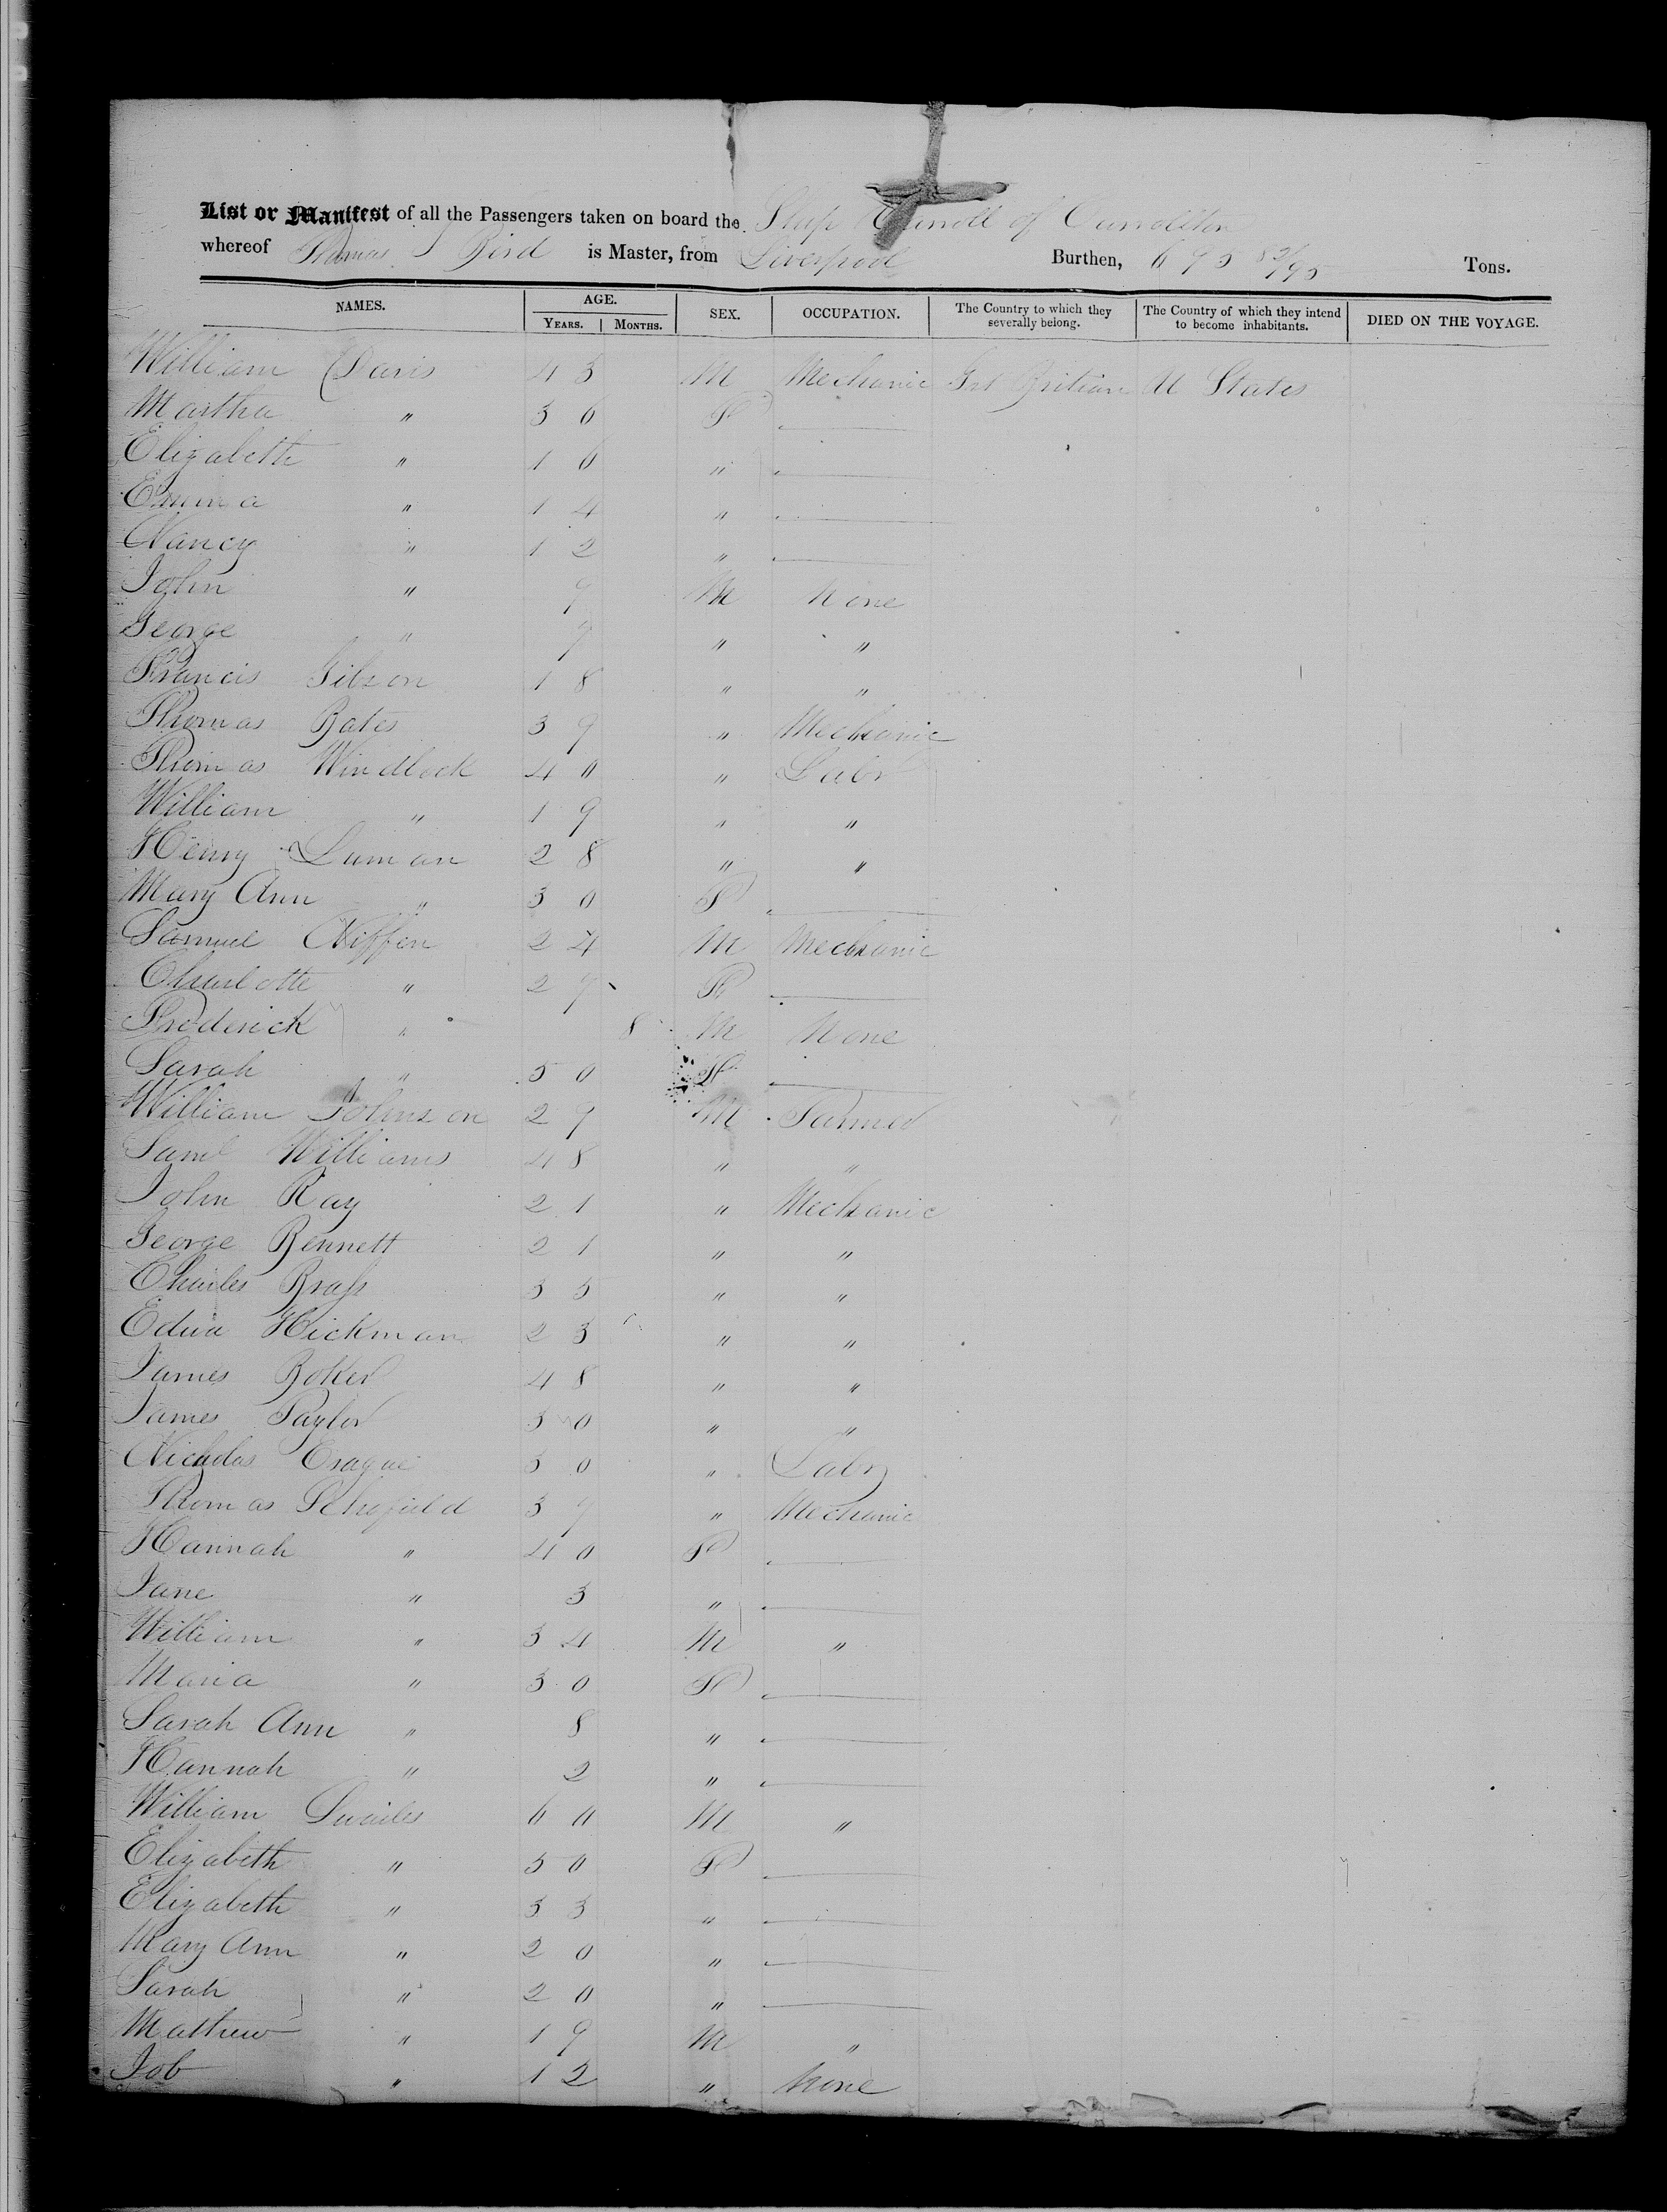 List or Manifest of all the Passengers taken on board the Ship Carroll of Carrollton
whereof Thomas Bird is Master, from Liverpool Burthen, Tons.
NAMES. AGE. YEARS. MONTHS. SEX. OCCUPATION. The Country to which they severally belong. The Country of which they intend to become inhabitants. DIED ON THE VOYAGE.
William Davis 43 M Mechanic Grt Britian U States
Martha " 36 F
Elizabeth " 16 "
Emma " 14 "
Nancy " 12 "
John " 9 M None
George " " "
Francis Gibson 18 " "
Thomas Bates 39 " Mechanic
Thomas Windlock 40 " Labr
William " 19 " "
Henry Luman 28 " "
Mary Ann " 30 F
Samuel Niffen 24 M Mechanic
Charlotte " F
Frederick " 8 M None
Sarah " 50 F
William Johnson 29 M Farmer
Saml Williams 48 " "
John Ray 21 " Mechanic
George Bennett 21 " "
Charles Brass " "
Edwd Hickman 23 " "
James Boker 48 " "
James Taylor 30 " "
Nicholas 30 " Labr
Thomas Schofield 39 " Mechanic
Hannah " 40 F
Jane " 3 "
William " 34 M "
Maria " 30 F
Sarah Ann " 8 "
Hannah " 2 "
William 60 M "
Elizabeth " 50 F
Elizabeth " 33 "
Mary Ann " 20 "
Sarah " 20 "
Mathew " 19 M "
Job " 12 " None